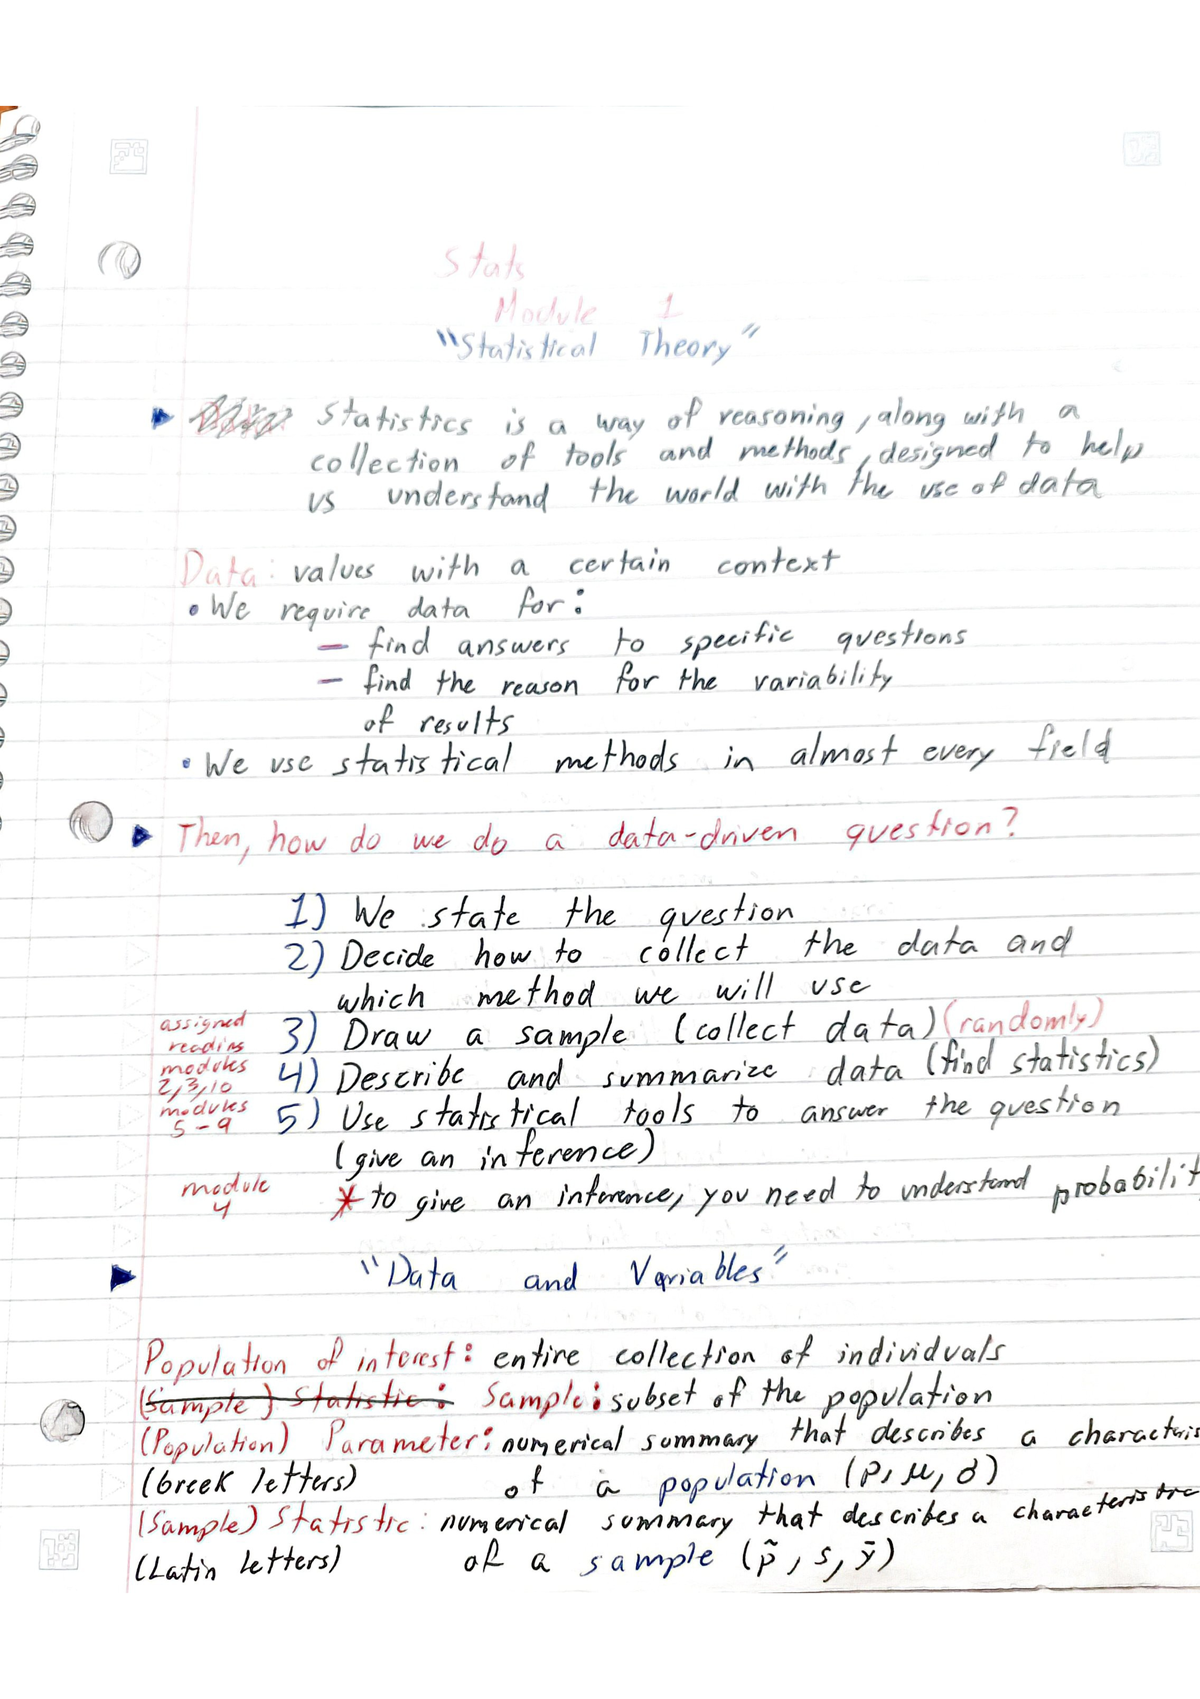 Stats
Module 1
"Statistical Theory"
Statistics is a way of reasoning, along with a
collection of tools and methods, designed to help
us understand the world with the use of data
Data: values with a certain context
• We require data for:
— find answers to specific questions
— find the reason for the variability
of results
• We use statistical methods in almost every field
Then, how do we do a data-driven question?
1) We state the question
2) Decide how to collect the data and
which method we will use
assigned
readins
3) Draw a sample (collect data) (randomly)
modules
2,3,10
4) Describe and summarize data (find statistics)
modules
5-9
5) Use statistical tools to answer the question
(give an inference)
module
4
* to give an inference, you need to understand probabilit
"Data and Variables"
Population of interest: entire collection of individuals
(Sample) Statistic: Sample: subset of the population
(Population) Parameter: numerical summary that describes a characteris
(Greek letters) of a population (p, μ, σ)
(Sample) Statistic: numerical summary that describes a characteristic
(Latin letters) of a sample (p̃, s, ȳ)